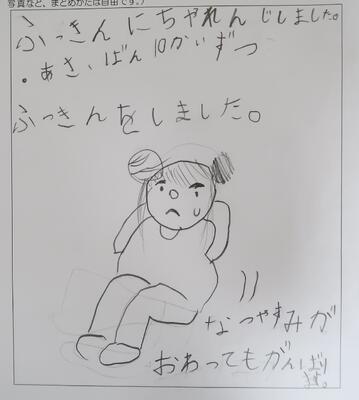 写真など、まとめかたは自由です。)
ふっきんにちゃれんじしました。
・あさ、ばん10かいずつ
ふっきんをしました。
なつやすみが
おわってもがんばり
ます。